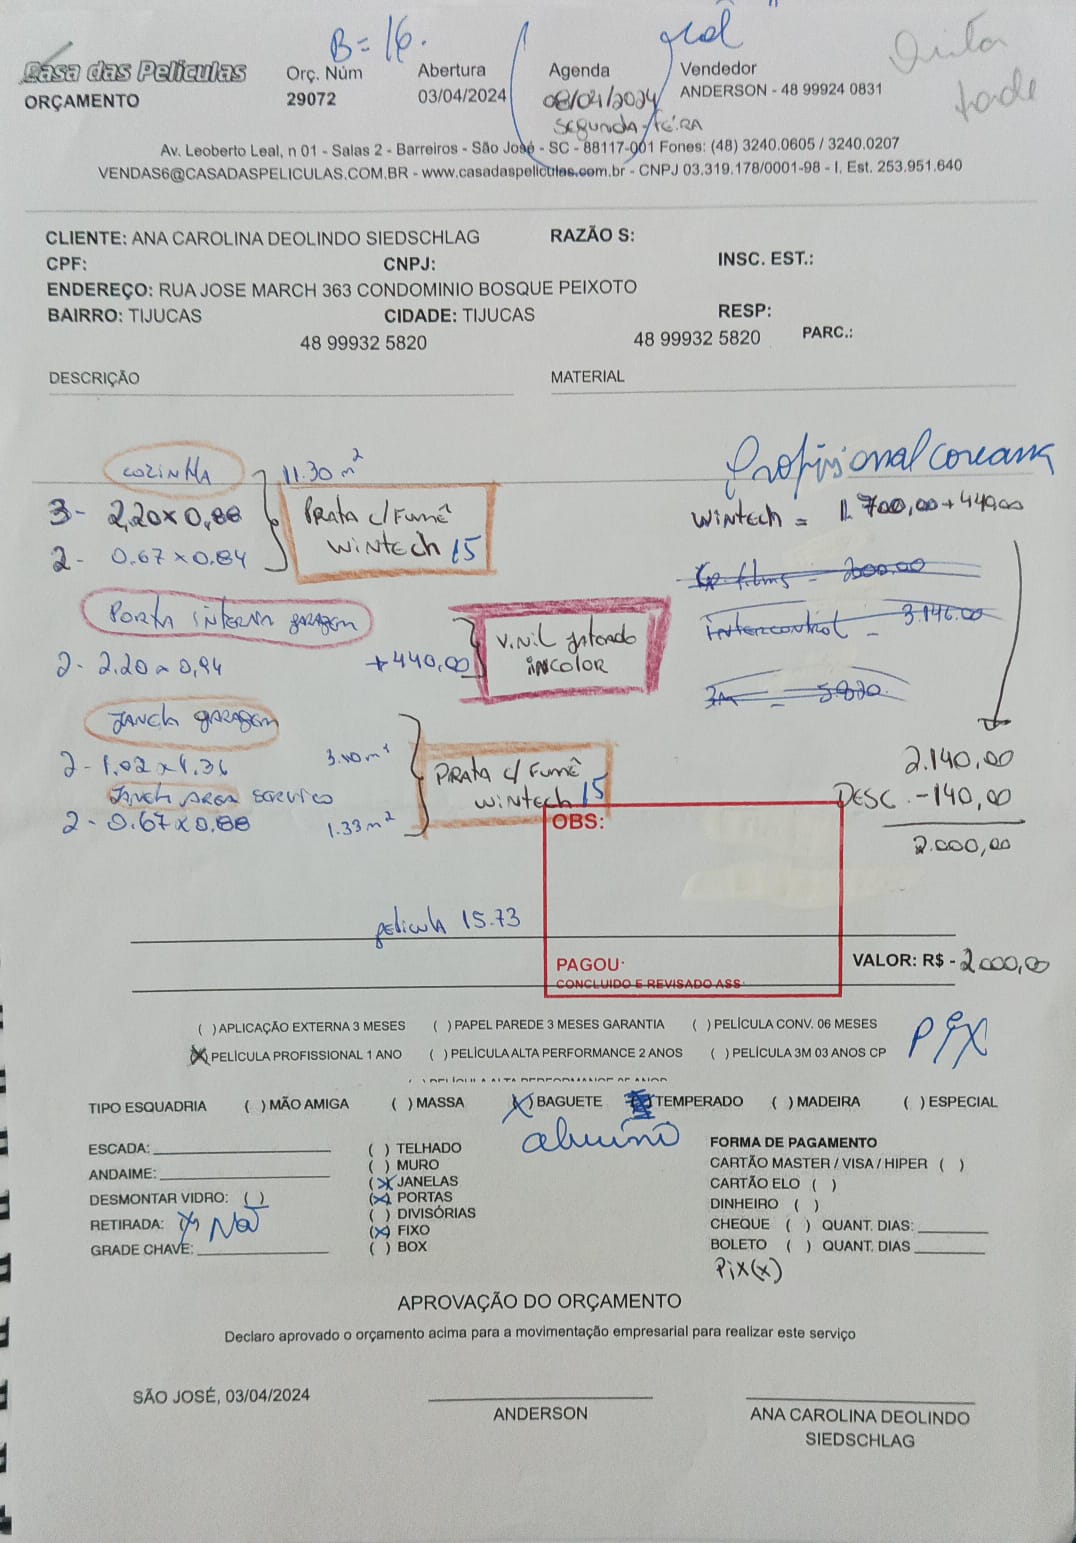 B = 16.
Casa das Películas
ORÇAMENTO
Orç. Núm
29072
Abertura
03/04/2024
Agenda
08/04/2024
SEGUNDA-FEIRA
Vendedor
ANDERSON - 48 99924 0831
Av. Leoberto Leal, n 01 - Salas 2 - Barreiros - São José - SC - 88117-001 Fones: (48) 3240.0605 / 3240.0207
VENDAS6@CASADASPELICULAS.COM.BR - www.casadaspeliculas.com.br - CNPJ 03.319.178/0001-98 - I. Est. 253.951.640
CLIENTE: ANA CAROLINA DEOLINDO SIEDSCHLAG RAZÃO S:
CPF: CNPJ: INSC. EST.:
ENDEREÇO: RUA JOSE MARCH 363 CONDOMINIO BOSQUE PEIXOTO
BAIRRO: TIJUCAS CIDADE: TIJUCAS RESP:
48 99932 5820 48 99932 5820 PARC.:
DESCRIÇÃO MATERIAL
COZINHA 11.30 m²
3- 2,20x0,88
2- 0.67x0.84
PRATA C/ FUMÊ
WINTECH 15
Profissional coreana
WINTECH = 1.700,00+440,00
films - 2000.00
intercontrol - 3.146.00
3M - 5.820.
PORTA INTERNA GARAGEM
2- 2.20x0,94 +440,00
VINIL JATEADO
INCOLOR
JANELA GARAGEM
2- 1.02x1.36
JANELA AREA SERVICO
2- 0.67x0.88 1.33m²
PRATA C/ FUMÊ
WINTECH 15
2.140,00
DESC. -140,00
2.000,00
película 15.73
OBS:
PAGOU:
CONCLUIDO E REVISADO ASS
VALOR: R$ - 2.000,00
( ) APLICAÇÃO EXTERNA 3 MESES ( ) PAPEL PAREDE 3 MESES GARANTIA ( ) PELÍCULA CONV. 06 MESES
(X) PELÍCULA PROFISSIONAL 1 ANO ( ) PELÍCULA ALTA PERFORMANCE 2 ANOS ( ) PELÍCULA 3M 03 ANOS CP
PIX
TIPO ESQUADRIA ( ) MÃO AMIGA ( ) MASSA (X) BAGUETE TEMPERADO ( ) MADEIRA ( ) ESPECIAL
aluminio
ESCADA:
ANDAIME:
DESMONTAR VIDRO: ( )
RETIRADA: (X) Não
GRADE CHAVE:
( ) TELHADO
( ) MURO
(X) JANELAS
(X) PORTAS
( ) DIVISÓRIAS
(X) FIXO
( ) BOX
FORMA DE PAGAMENTO
CARTÃO MASTER / VISA / HIPER ( )
CARTÃO ELO ( )
DINHEIRO ( )
CHEQUE ( ) QUANT. DIAS:
BOLETO ( ) QUANT. DIAS
PIX(X)
APROVAÇÃO DO ORÇAMENTO
Declaro aprovado o orçamento acima para a movimentação empresarial para realizar este serviço
SÃO JOSÉ, 03/04/2024
ANDERSON
ANA CAROLINA DEOLINDO
SIEDSCHLAG